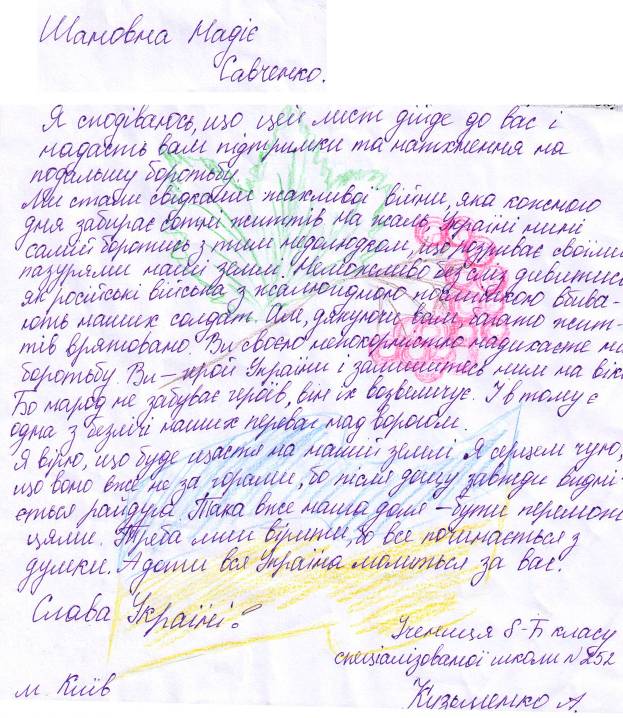 Шановна Надіє
Савченко.
Я сподіваюсь, що цей лист дійде до вас і
надасть вам підтримки та натхнення на
подальшу боротьбу.
Ми стали свідками жахливої війни, яка кожного
дня забирає сотні життів. На жаль, Україні нині
самій боротись з тим недолюдком, що розриває своїми
пазурями наші землі. Неможливо без сліз дивитись
як російські війська з жалюгідною посмішкою вбива-
ють наших солдат. Але, дякуючи вам, багато жит-
тів врятовано. Ви своєю непокорністю надихаєте на
боротьбу. Ви – герой України і залишитесь ним на віки
Бо народ не забуває героїв, він їх возвеличує. І в тому є
одна з безлічі наших переваг над ворогом.
Я вірю, що буде щастя на нашій землі. Я серцем чую,
що воно вже не за горами, бо після дощу завжди видні-
ється райдуга. Така вже наша доля – бути перемож
цями. Треба лиш вірити, бо все починається з
думки. А доти вся Україна молиться за вас!
Слава Україні!
Учениця 8-Б класу
спеціалізованої школи №252
м. Київ
Кузьменко А.